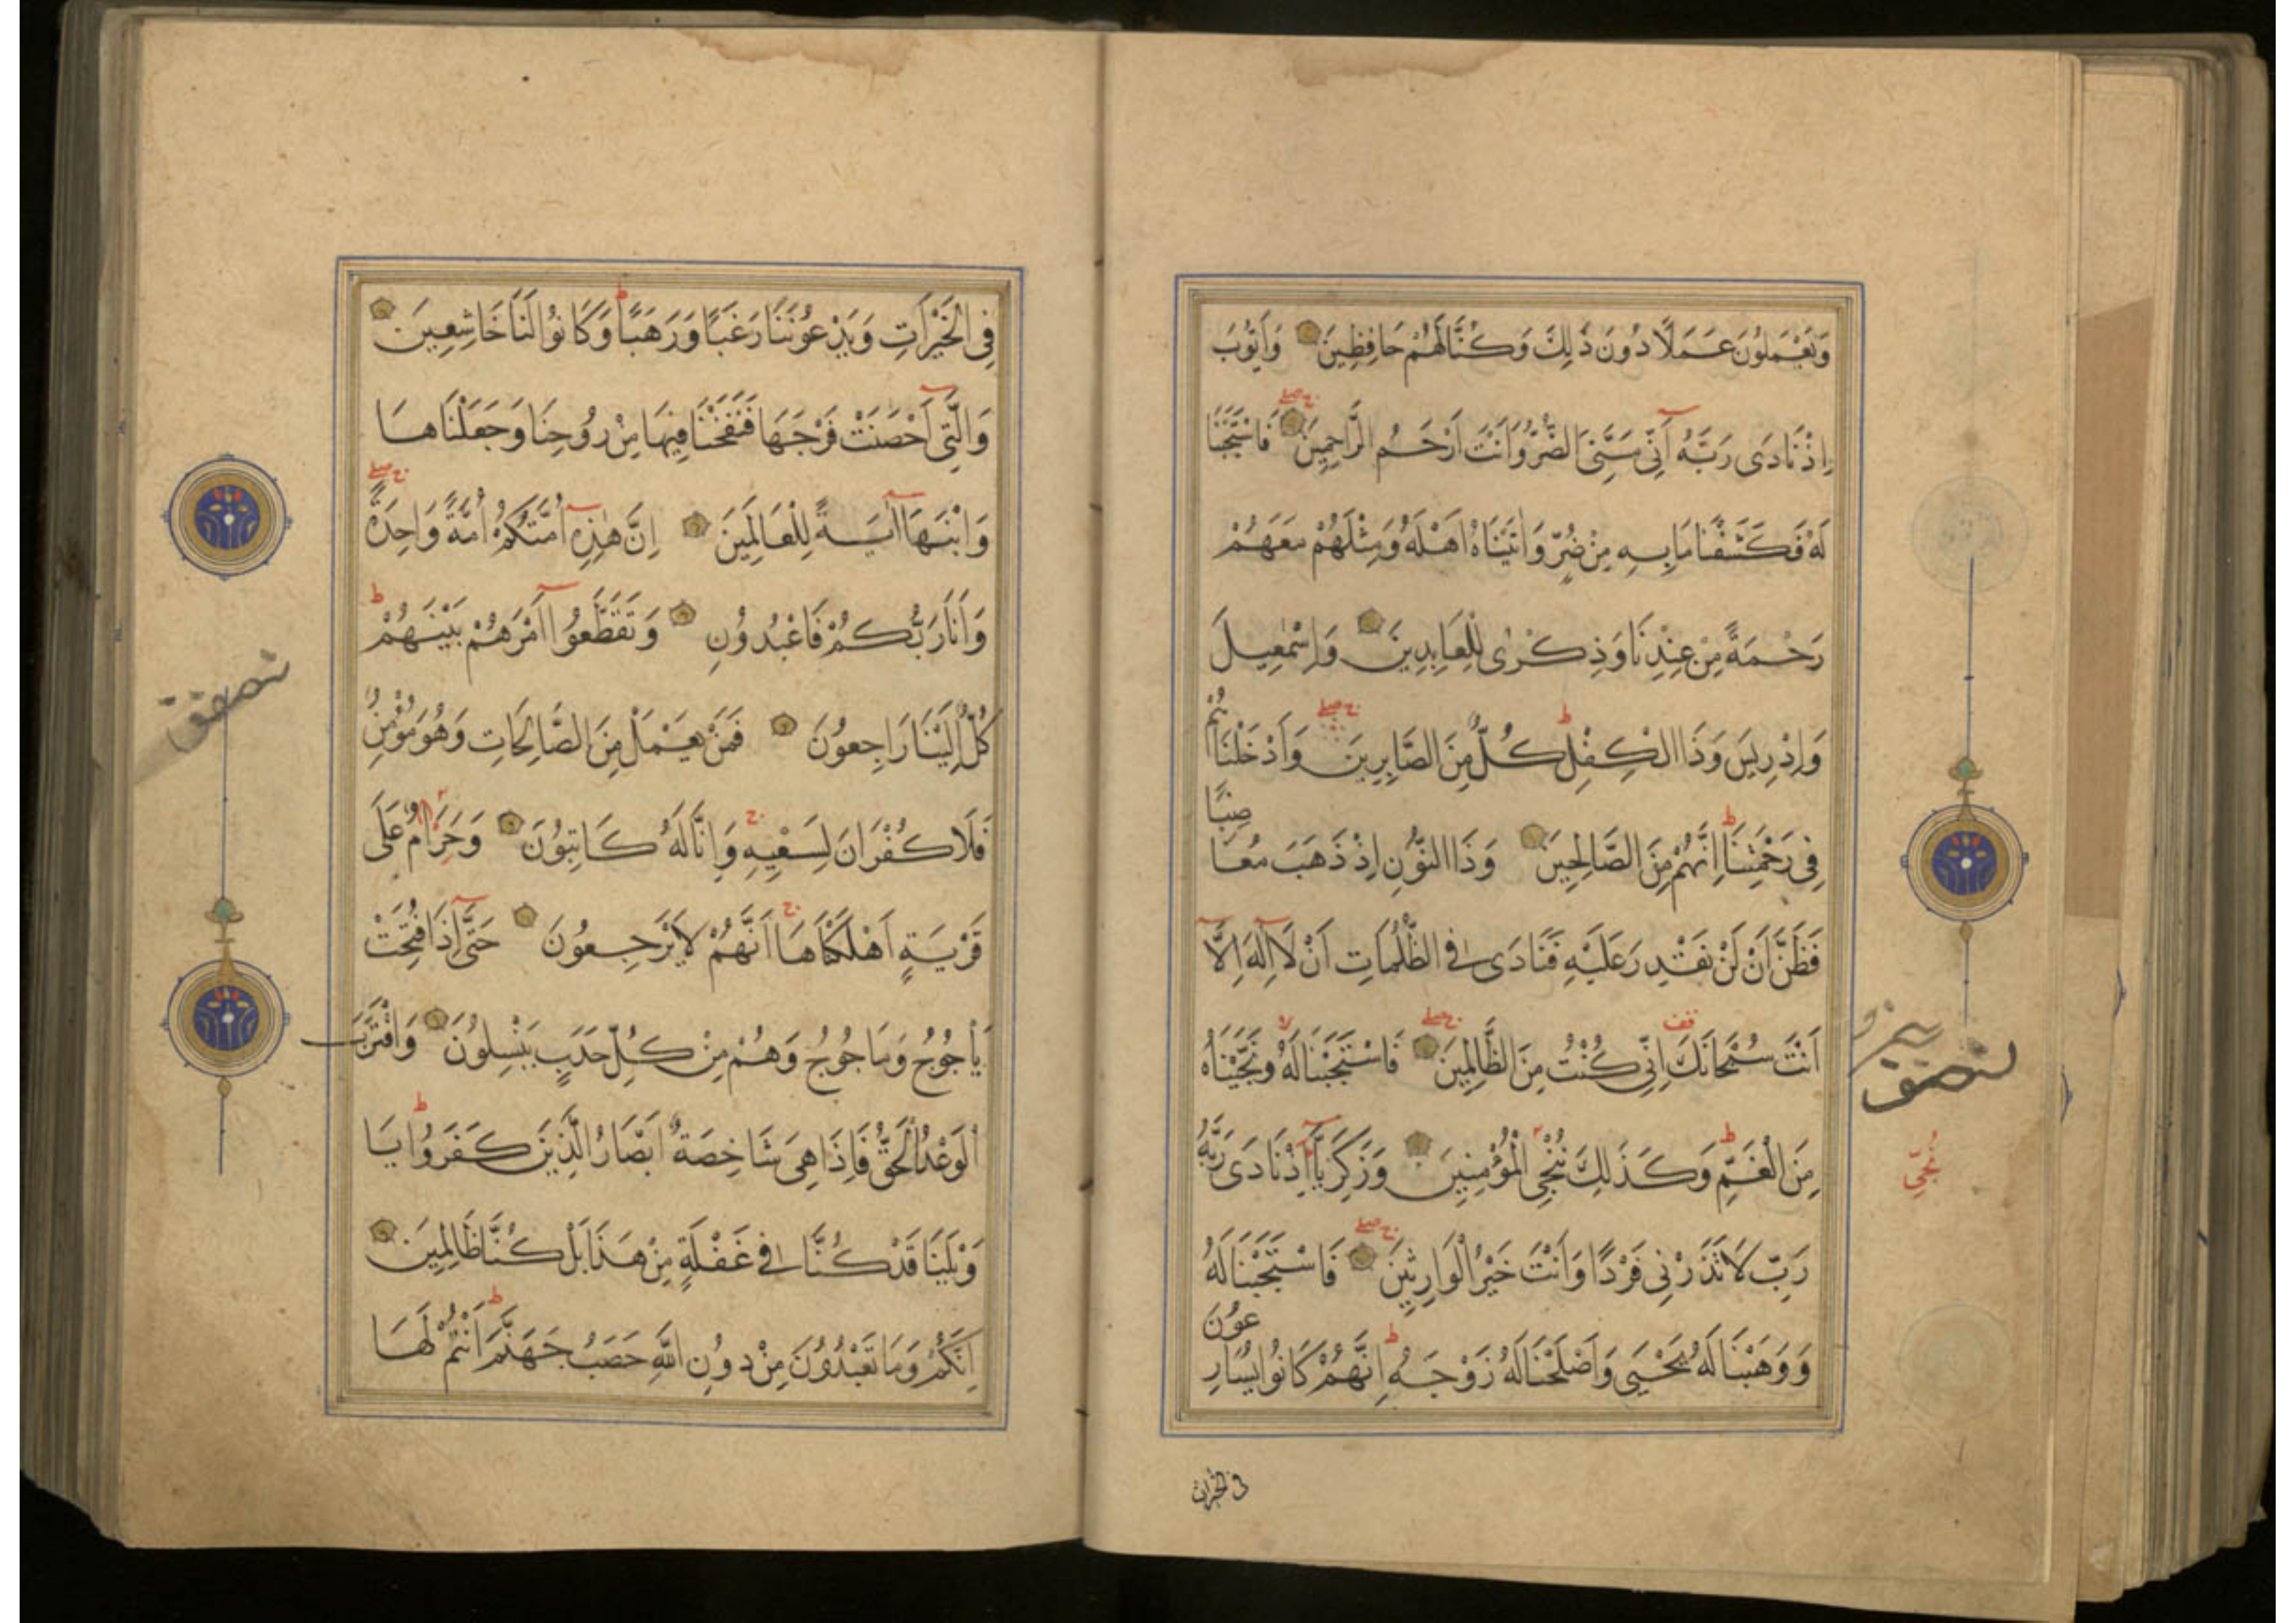 وَيَعْمَلُونَ عَمَلًا دُونَ ذَٰلِكَ وَكُنَّا لَهُمْ حَافِظِينَ وَاَيُّوبَ
اِذْ نَادَى رَبَّهُ اَنِّي مَسَّنِيَ الضُّرُّ وَاَنْتَ اَرْحَمُ الرَّاحِمِينَ فَاسْتَجَبْنَا
لَهُ فَكَشَفْنَا مَا بِهِ مِنْ ضُرٍّ وَاٰتَيْنَاهُ اَهْلَهُ وَمِثْلَهُمْ مَعَهُمْ
رَحْمَةً مِنْ عِنْدِنَا وَذِكْرٰى لِلْعَابِدِينَ وَاِسْمٰعِيلَ
وَاِدْرِيسَ وَذَا الْكِفْلِ كُلٌّ مِنَ الصَّابِرِينَ وَاَدْخَلْنَاهُمْ
فِي رَحْمَتِنَا اِنَّهُمْ مِنَ الصَّالِحِينَ وَذَا النُّونِ اِذْ ذَهَبَ مُغَاضِبًا
فَظَنَّ اَنْ لَنْ نَقْدِرَ عَلَيْهِ فَنَادَى فِي الظُّلُمَاتِ اَنْ لَا اِلٰهَ اِلَّا
اَنْتَ سُبْحَانَكَ اِنِّي كُنْتُ مِنَ الظَّالِمِينَ فَاسْتَجَبْنَا لَهُ وَنَجَّيْنَاهُ
مِنَ الْغَمِّ وَكَذَلِكَ نُنْجِي الْمُؤْمِنِينَ وَزَكَرِيَّا اِذْ نَادَى رَبَّهُ
رَبِّ لَا تَذَرْنِي فَرْدًا وَاَنْتَ خَيْرُ الْوَارِثِينَ فَاسْتَجَبْنَا لَهُ
وَوَهَبْنَا لَهُ يَحْيَى وَاَصْلَحْنَا لَهُ زَوْجَهُ اِنَّهُمْ كَانُوا يُسَارِعُونَ
فى الخيرات
فِي الْخَيْرَاتِ وَيَدْعُونَنَا رَغَبًا وَرَهَبًا وَكَانُوا لَنَا خَاشِعِينَ
وَالَّتِي اَحْصَنَتْ فَرْجَهَا فَنَفَخْنَا فِيهَا مِنْ رُوحِنَا وَجَعَلْنَاهَا
وَابْنَهَا اٰيَةً لِلْعَالَمِينَ اِنَّ هٰذِهِ اُمَّتُكُمْ اُمَّةً وَاحِدَةً
وَاَنَا رَبُّكُمْ فَاعْبُدُونِ وَتَقَطَّعُوا اَمْرَهُمْ بَيْنَهُمْ
كُلٌّ اِلَيْنَا رَاجِعُونَ فَمَنْ يَعْمَلْ مِنَ الصَّالِحَاتِ وَهُوَ مُؤْمِنٌ
فَلَا كُفْرَانَ لِسَعْيِهِ وَاِنَّا لَهُ كَاتِبُونَ وَحَرَامٌ عَلَى
قَرْيَةٍ اَهْلَكْنَاهَا اَنَّهُمْ لَا يَرْجِعُونَ حَتَّى اِذَا فُتِحَتْ
يَأْجُوجُ وَمَاجُوجُ وَهُمْ مِنْ كُلِّ حَدَبٍ يَنْسِلُونَ وَاقْتَرَبَ
الْوَعْدُ الْحَقُّ فَاِذَا هِيَ شَاخِصَةٌ اَبْصَارُ الَّذِينَ كَفَرُوا يَا
وَيْلَنَا قَدْ كُنَّا فِي غَفْلَةٍ مِنْ هَذَا بَلْ كُنَّا ظَالِمِينَ
اِنَّكُمْ وَمَا تَعْبُدُونَ مِنْ دُونِ اللّٰهِ حَصَبُ جَهَنَّمَ اَنْتُمْ لَهَا